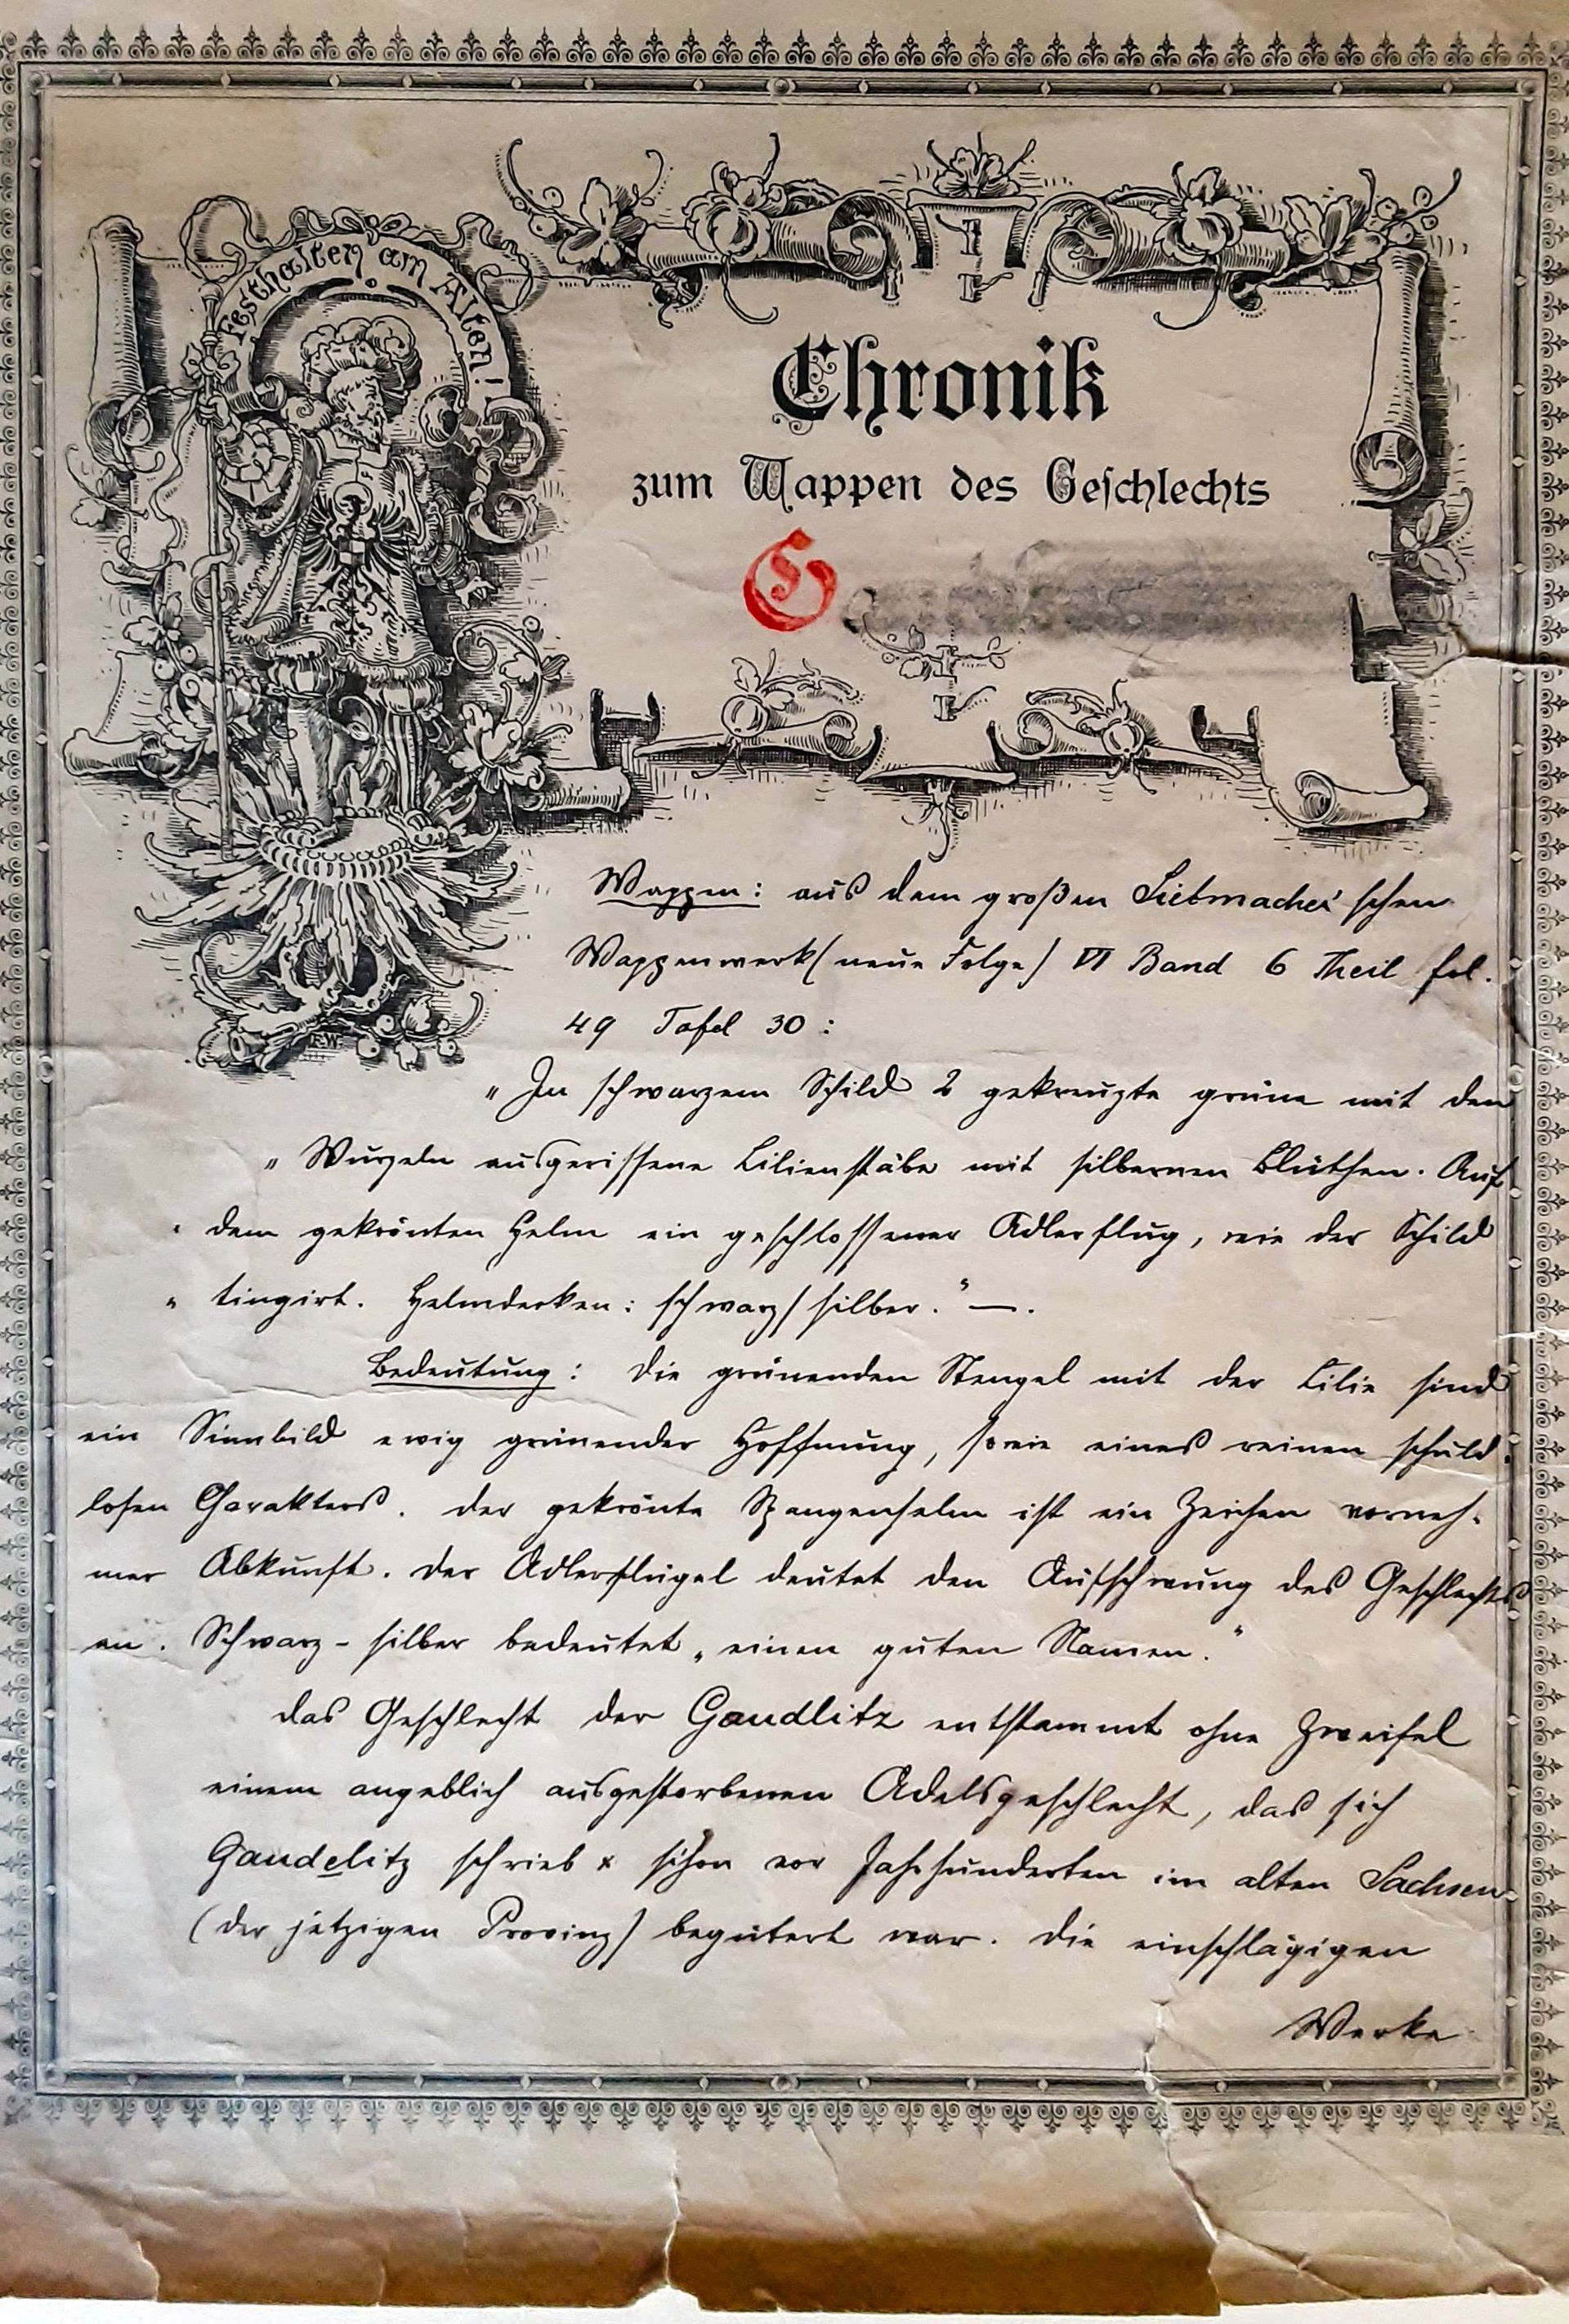 Festhalten am Alten!
Chronik
zum Wappen des Geschlechts
G
F.W.
Wappen: aus dem großen Siebmacher'schen
Wappenwerk (neue Folge) VI Band 6 Theil fol.
49 Tafel 30:
„In schwarzem Schild 2 gekreuzte grüne mit den
„Wurzeln ausgerissene Lilienstäbe mit silbernen Blüthen. Auf
„dem gekrönten Helm ein geschlossener Adlerflug, wie der Schild
„tingirt. Helmdecken: schwarz/silber." —.
Bedeutung: Die grünenden Stengel mit der Lilie sind
ein Sinnbild ewig grünender Hoffnung, sowie eines reinen schuld-
losen Charakters. Der gekrönte Spangenhelm ist ein Zeichen vorneh-
mer Abkunft. Der Adlerflügel deutet den Aufschwung des Geschlechts
an. Schwarz-silber bedeutet „einen guten Namen."
Das Geschlecht der Gaudlitz entstammt ohne Zweifel
einem angeblich ausgestorbenen Adelsgeschlecht, das sich
Gaudelitz schrieb & schon vor Jahrhunderten im alten Sachsen
(der jetzigen Provinz) begütert war. Die einschlägigen
Werke